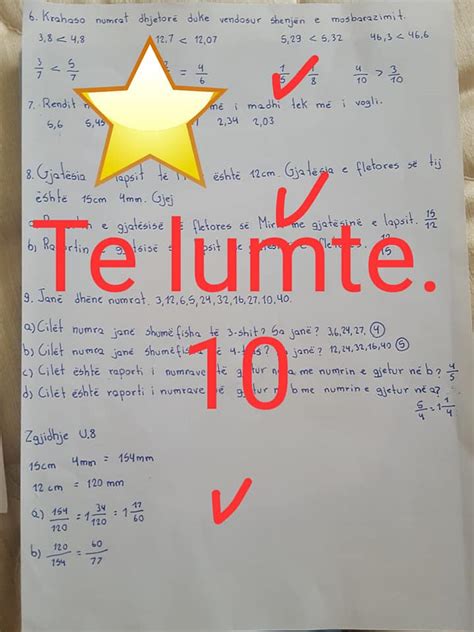 6. Krahaso numrat dhjetorë duke vendosur shenjën e mosbarazimit.
3,8 < 4,8 12,7 < 12,07 5,29 < 5,32 46,3 < 46,6
3/7 < 5/7 = 4/6 1/5 1/8 4/10 > 3/10
7. Rendit më i madhi tek më i vogli.
5,6 5,45 2,34 2,03
8. Gjatësia lapsit të është 12cm. Gjatësia e fletores së tij
është 15cm 4mm. Gjej
a) e gjatësisë së fletores së Mirit me gjatësinë e lapsit. 15/12
b) Raportin e gjatësisë së lapsit me gjatësinë e fletores. 12
Te lumte.
9. Janë dhënë numrat. 3,12,6,5,24,32,16,27,10,40.
a) Cilët numra janë shumëfisha të 3-shit? Sa janë? 3,6,24,27, 4
b) Cilët numra janë shumëfisha të 4-tës? Sa janë? 12,24,32,16,40 5
c) Cilët është raporti i numrave të gjetur në a me numrin e gjetur në b? 4/5
d) Cilët është raporti i numrave të gjetur në b me numrin e gjetur në a?
5/4 = 1 1/4
10
Zgjidhje U.8
15cm 4mm = 154mm
12 cm = 120 mm
a) 154/120 = 1 34/120 = 1 17/60
b) 120/154 = 60/77